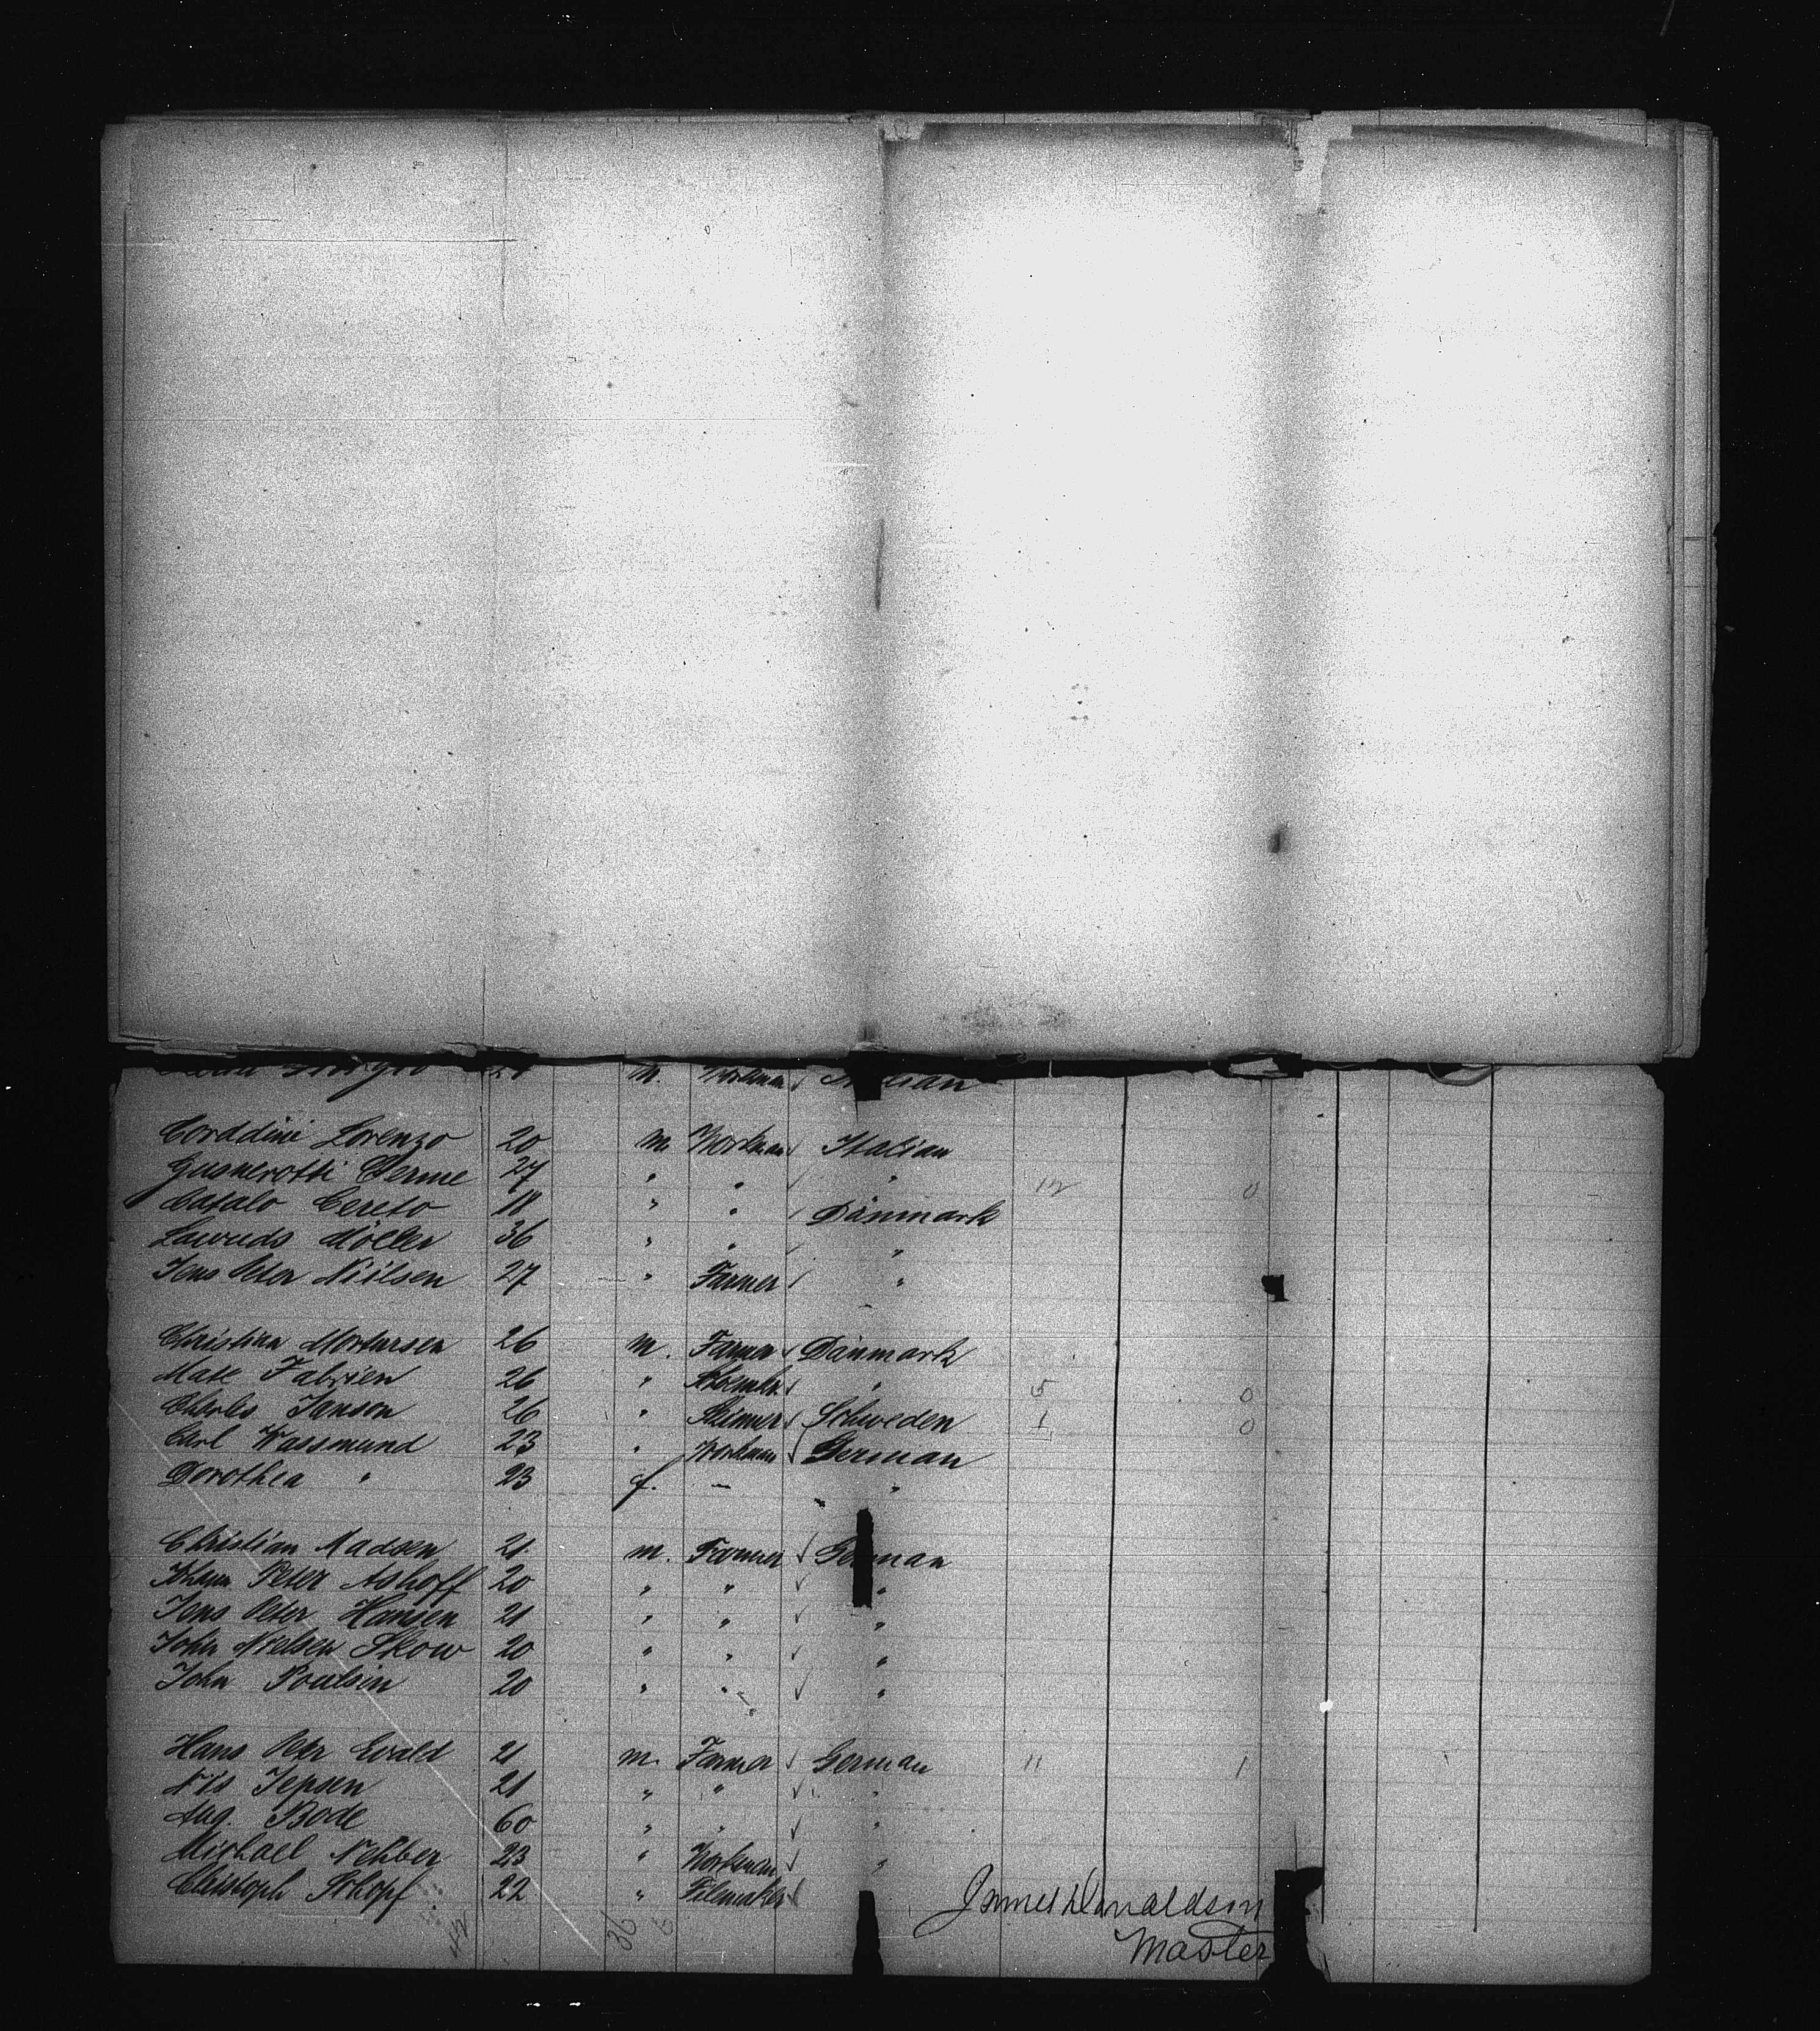 m. Workman Italian
Corddini Lorenzo 20 m. Workman Italian
Gusnerotti 27 " " "
Catalo Cereto 18 " " Dänmark
Möller 36 " " "
Jens Peter Niilsen 27 " Farmer "
Christian Mortensen 26 m. Farmer Dänmark
Fabrien 26 " "
Charles Janson 26 " Schweden
Carl Wassmund 23 " Workman German
Dorothea " 23 f. — "
Christian Madsen 21 m. Farmer German
Peter Ashoff 20 " " "
Jens Peter Hansen 21 " " "
John Nielsen Skow 20 " " "
John Poulsen 20 " " "
Hans Peter Ewald 21 m. Farmer German 11 1
Nis Jepsen 21 " " "
Aug. Bode 60 " " "
Michael Nehber 23 " Workman "
Christoph 22 "
James Donaldson
Master